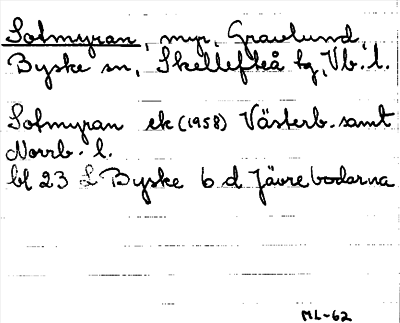 Solmyran, myr, Gravlund,
Byske sn, Skellefteå tg, Vb. l.
Solmyran ek (1958) Västerb. samt
Norrb. l.
bl 23 L Byske 6 d Jävrebodarna
ML-62